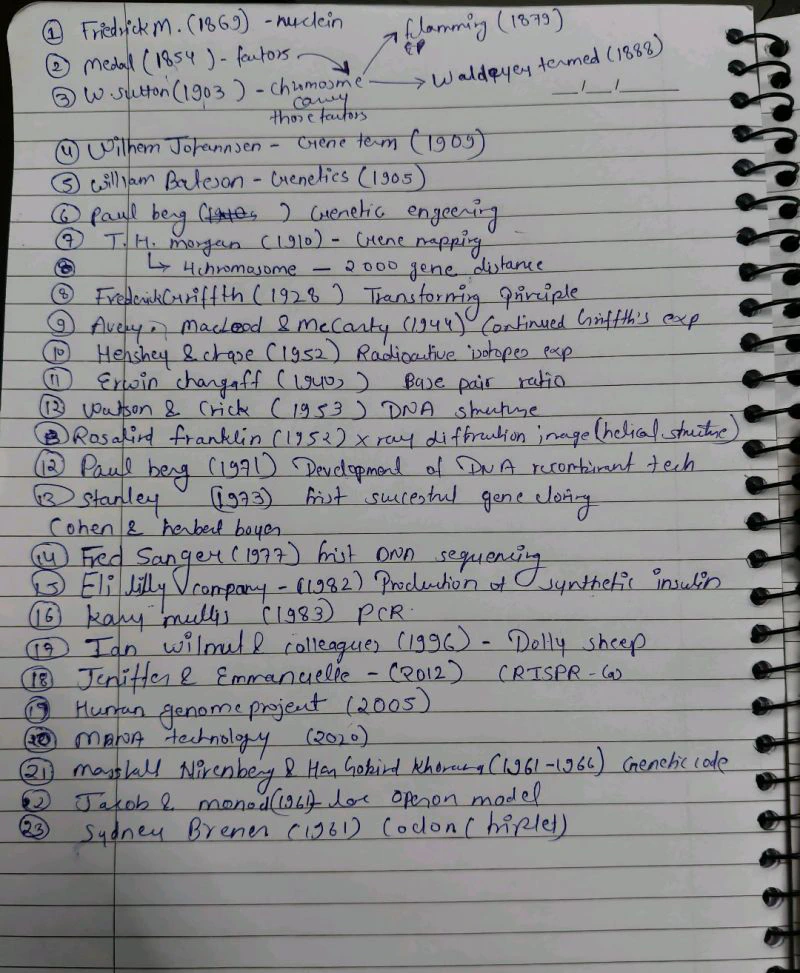 ① Friedrick M. (1869) - nuclein
flamming (1879)
② Medal (1854) - factors
Waldeyer termed (1888)
③ W. Sutton (1903) - chromosme
carry
those factors
④ Wilhem Johannsen - Gene term (1909)
⑤ William Bateson - Genetics (1905)
⑥ Paul berg ( ) Genetic engeering
⑦ T. H. morgan (1910) - Gene mapping
↳ 4 chromosome - 2000 gene distance
⑧ Fredrick Griffth (1928) Transforming principle
⑨ Avery, Macleod & McCarty (1944) Continued Griffth's exp
⑩ Hershey & chase (1952) Radioactive isotopes exp
⑪ Erwin chargaff (1940s) Base pair ratio
⑫ Watson & Crick (1953) DNA structure
Rosalind franklin (1952) x ray diffraction image (helical structure)
⑫ Paul berg (1971) Development of DNA recombirant tech
⑬ Stanley (1973) frist successful gene cloning
Cohen & herbert boyer
⑭ Fred Sanger (1977) frist DNA sequencing
⑮ Eli lilly company - (1982) Production of synthetic insulin
⑯ kary mullis (1983) PCR.
⑰ Ian wilmut & colleagues (1996) - Dolly sheep
⑱ Jeniffer & Emmanuelle - (2012) CRISPR -
⑲ Human genome project (2005)
⑳ MRNA technology (2020)
㉑ Marshall Nirenberg & Har Gobind Khorana (1961-1966) Genetic code
㉒ Jacob & monod (1961) - lac operon model
㉓ Sydney Brener (1961) Codon (triplet)